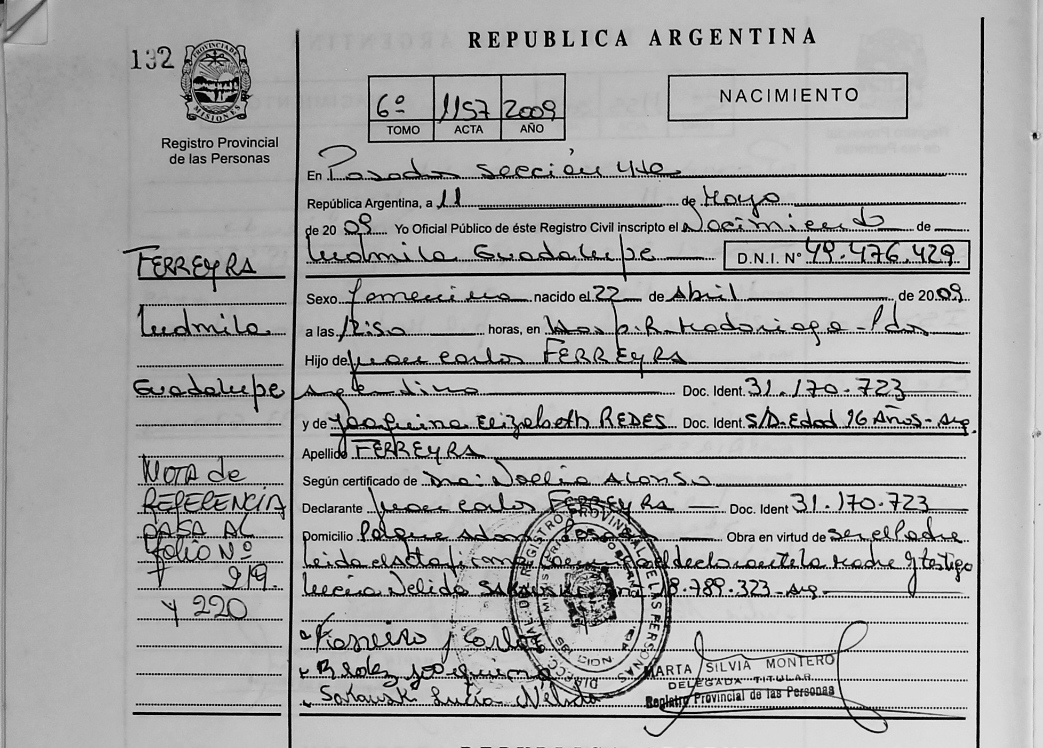 REPUBLICA ARGENTINA
132
PROVINCIA DE MISIONES
Registro Provincial
de las Personas
6º 1157 2009
TOMO ACTA AÑO
NACIMIENTO
En Posadas sección 4ta
República Argentina, a 11 de Mayo
de 2009 Yo Oficial Público de éste Registro Civil inscripto el Nacimiento de
Ludmila Guadalupe D.N.I. Nº 49.476.429
Sexo femenino nacido el 22 de Abril de 2009
a las 12:50 horas, en Hosp. R. Madariaga - Pdas
Hijo de Juan Carlos FERREYRA
Argentino Doc. Ident. 31.170.723
y de Joaquina Elizabeth REDES Doc. Ident. S/D. Edad 16 Años - Arg.
Apellido FERREYRA
Según certificado de Dra: Noelia Alonso
Declarante Juan Carlos FERREYRA Doc. Ident 31.170.723
Domicilio Obra en virtud de ser el Padre
leida el Acta el declarante la madre y testigo
Lucía Nelida 18.789.323 - Arg
FERREYRA
Ludmila
Guadalupe
NOTA de
REFERENCIA
PASA AL
folio Nº
219.
y 220
Carlos
Lucía Nélida
MARTA SILVIA MONTERO
DELEGADA TITULAR
Registro Provincial de las Personas